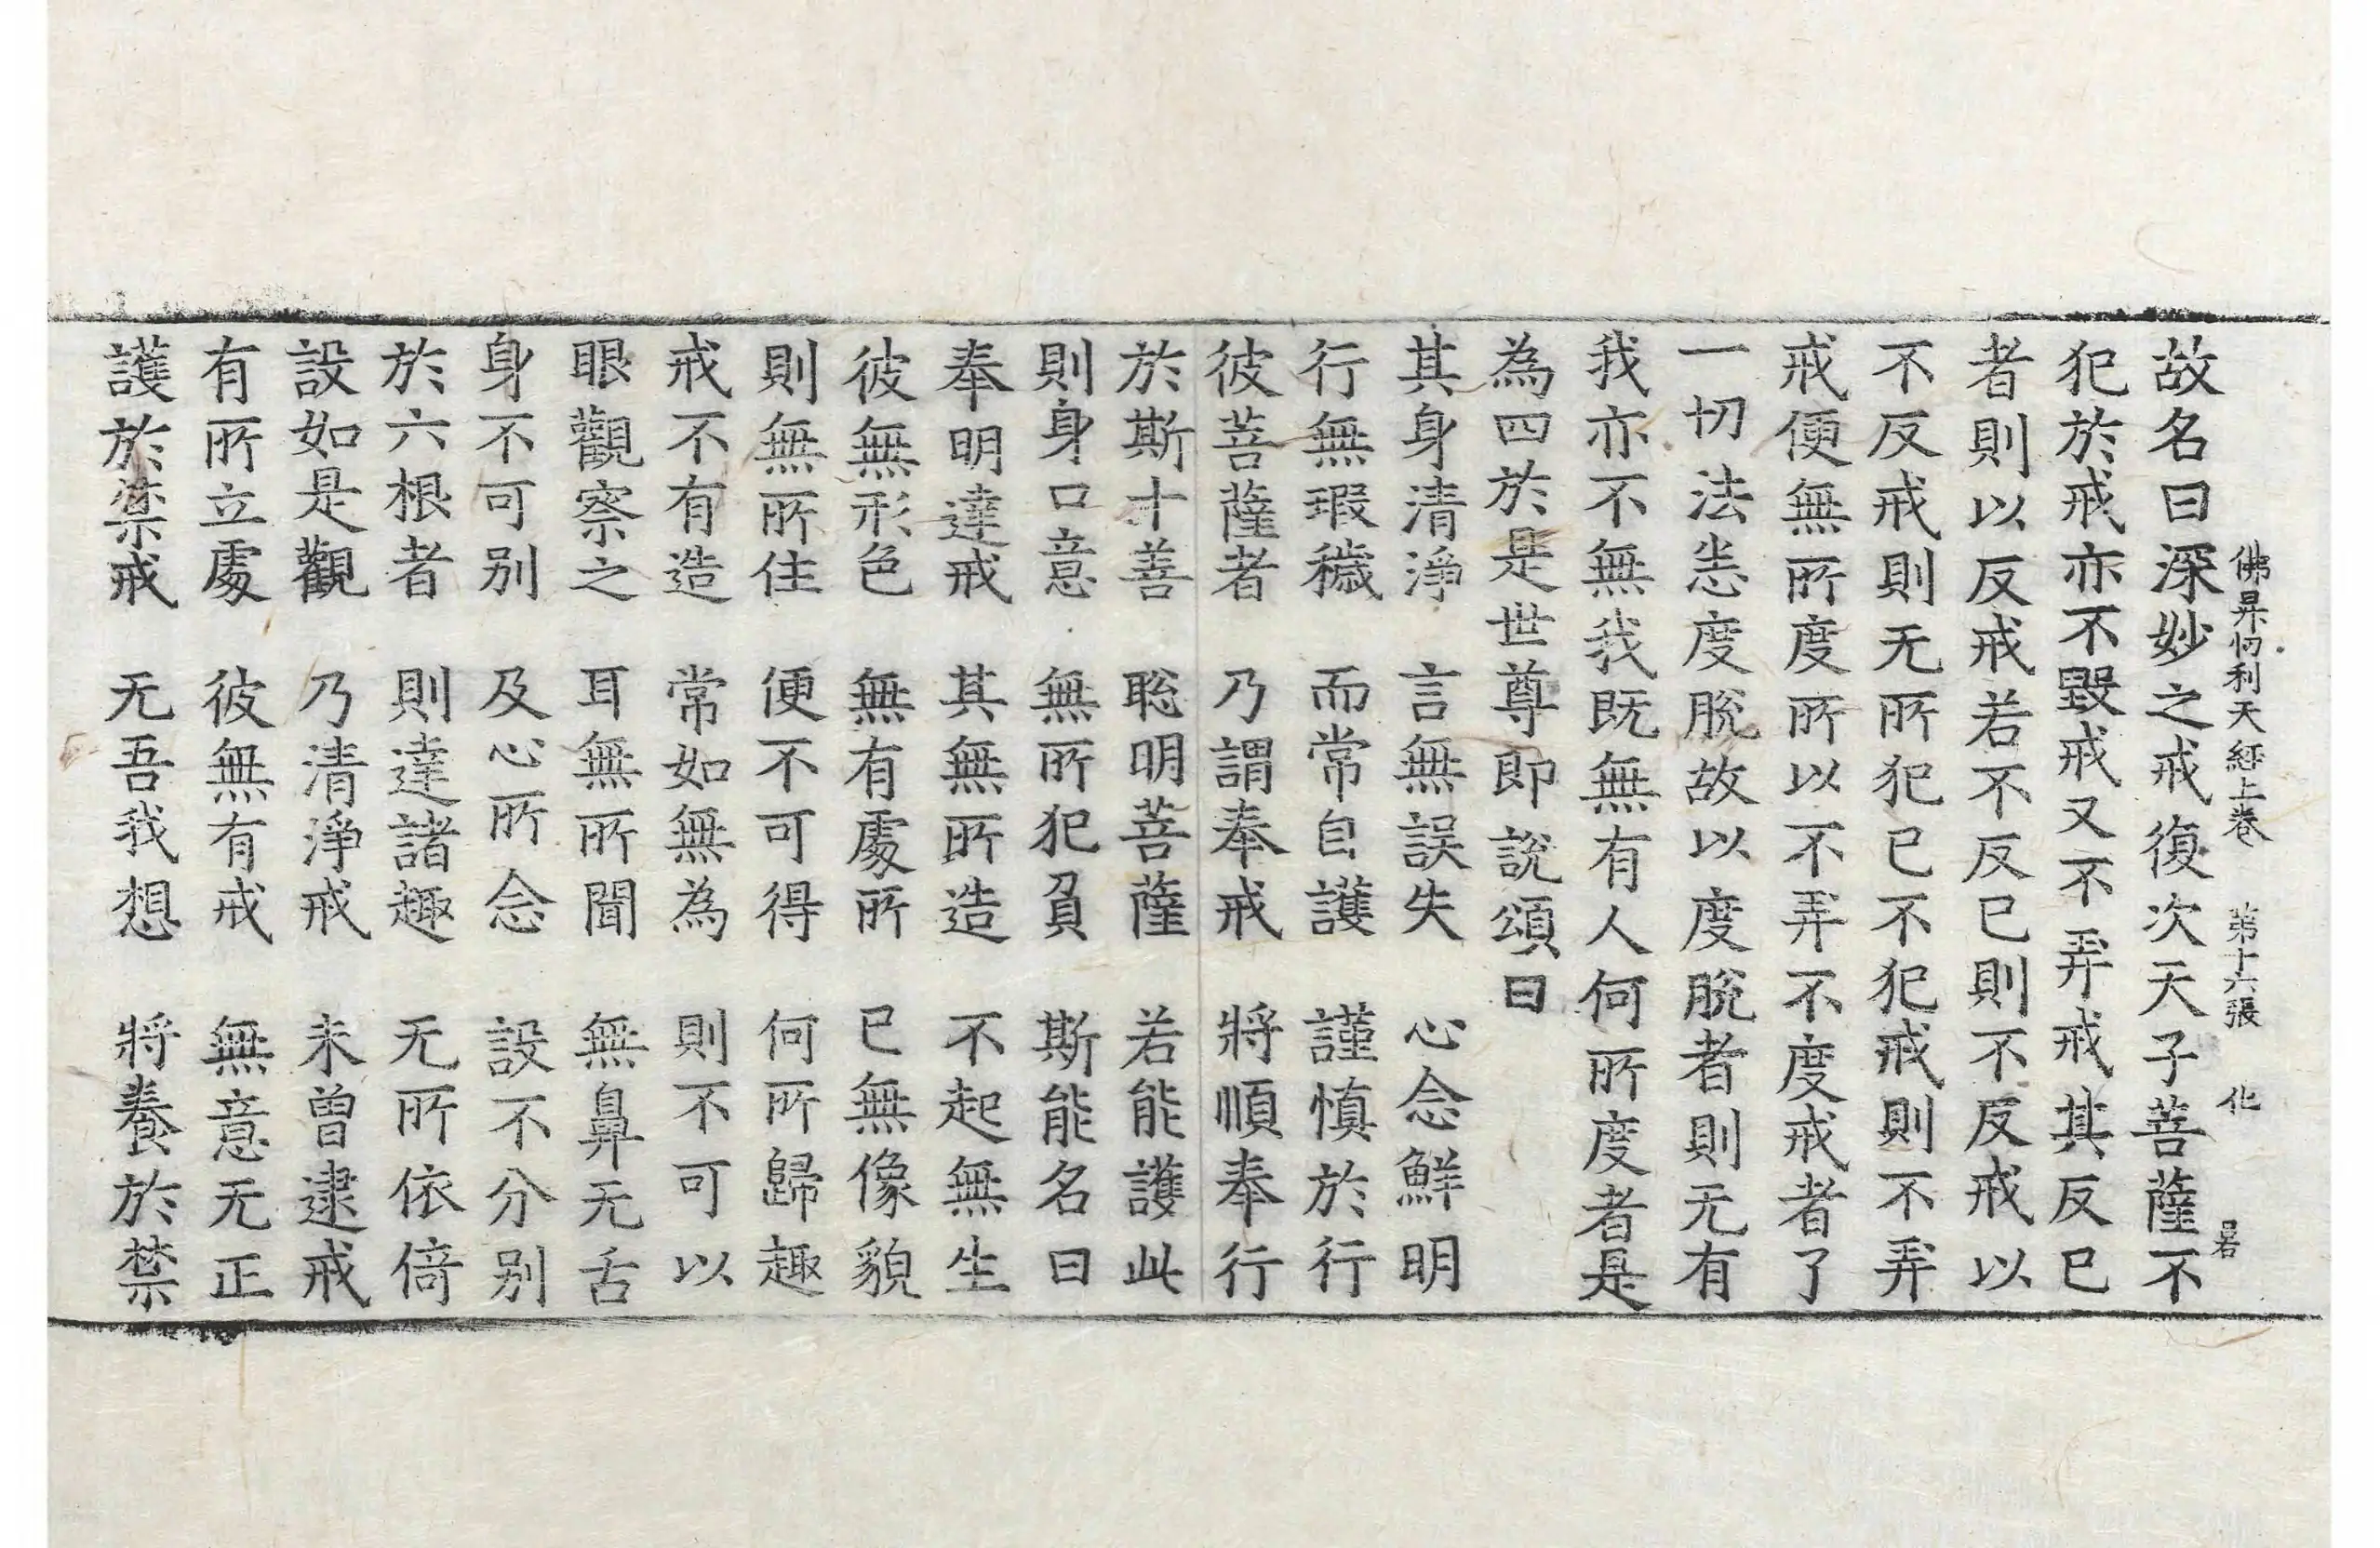 佛昇忉利天經上卷　第十六張　化
故名曰深妙之戒復次天子菩薩不
犯於戒亦不毀戒又不弄戒其反已
者則以反戒若不反已則不反戒以
不反戒則无所犯已不犯戒則不弄
戒便無所度所以不弄不度戒者了
一切法恙度脫故以度脫者則无有
我亦不無我既無有人何所度者是
為四於是世尊即說頌曰
其身清淨　言無誤失　心念鮮明
行無瑕穢　而常自護　謹慎於行
彼菩薩者　乃謂奉戒　將順奉行
於斯十善　聡明菩薩　若能護此
則身口意　無所犯負　斯能名曰
奉明達戒　其無所造　不起無生
彼無形色　無有處所　已無像貌
則無所住　便不可得　何所歸趣
戒不有造　常如無為　則不可以
眼觀察之　耳無所聞　無鼻无舌
身不可別　及心所念　設不分別
於六根者　則達諸趣　无所依倚
設如是觀　乃清淨戒　未曽逮戒
有所立處　彼無有戒　無意无正
護於禁戒　无吾我想　將養於禁